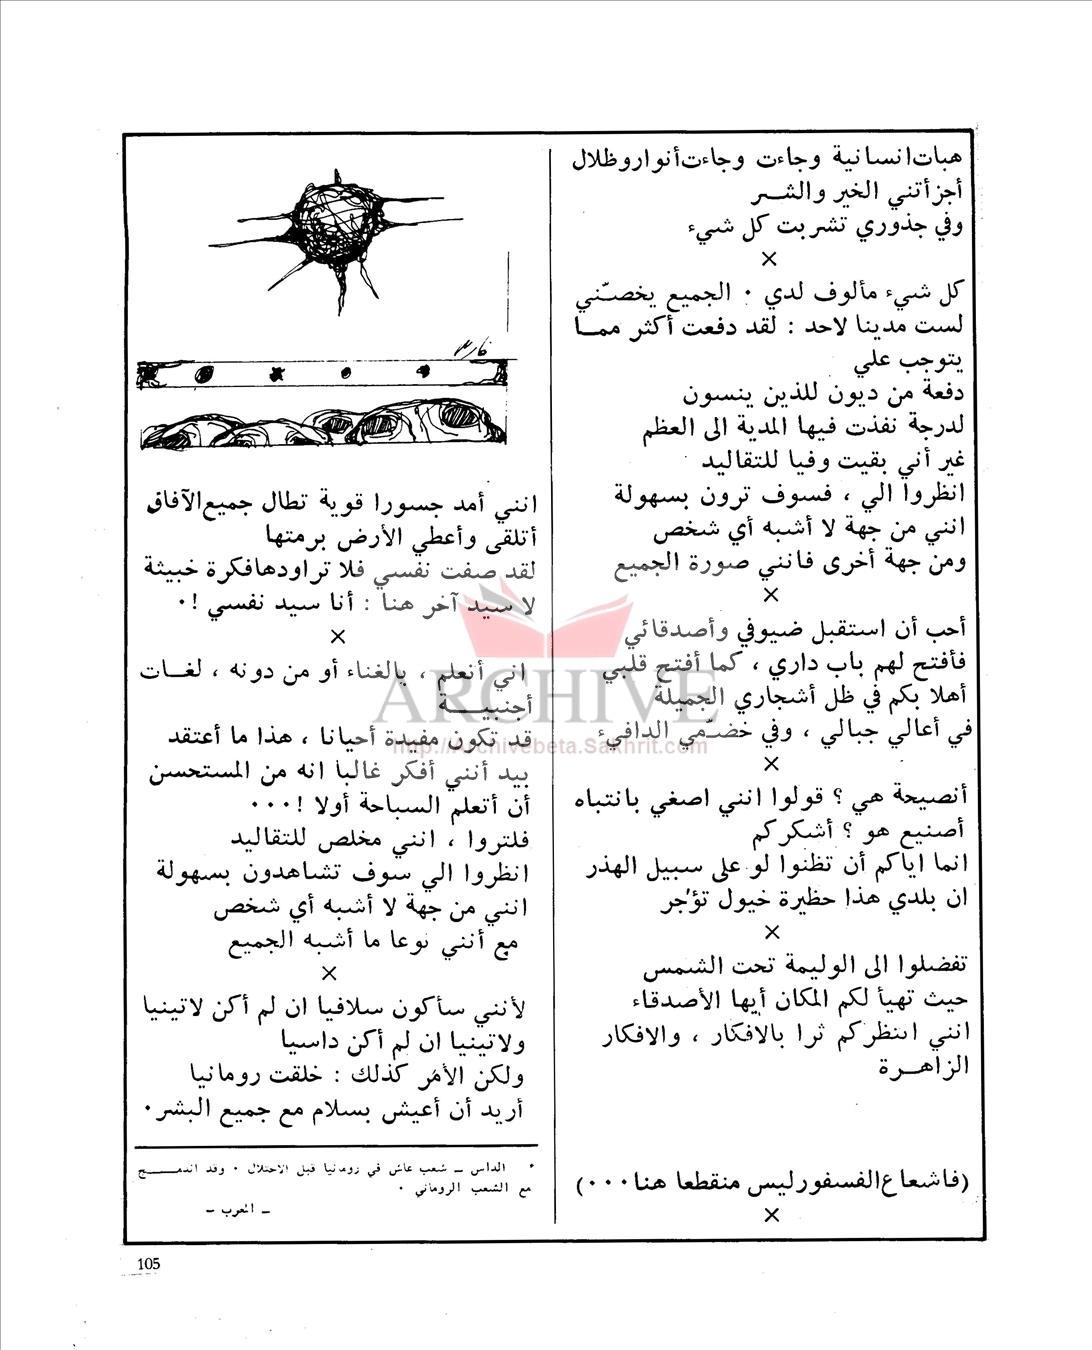 هبات انسانية وجاءت وجاءت أنوار وظلال
أجزأتني الخير والشـــر
وفي جذوري تشربت كل شيء
×
كل شيء مألوف لدي ٠ الجميع يخصّـني
لست مدينا لاحد : لقد دفعت أكثر ممـــا
يتوجب علي
دفعة من ديون للذين ينسون
لدرجة نفذت فيها المدية الى العظم
غير أني بقيت وفيا للتقاليد
انظروا الي ، فسوف ترون بسهولة
انني من جهة لا أشبه أي شخص
ومن جهة أخرى فانني صورة الجميع
×
أحب أن استقبل ضيوفي وأصدقائي
فأفتح لهم باب داري ، كما أفتح قلبي
أهلا بكم في ظل أشجاري الجميلة
في أعالي جبالي ، وفي خضـّمي الدافيء
×
أنصيحة هي ؟ قولوا انني اصغي بانتباه
أصنيع هو ؟ أشكركم
انما اياكم أن تظنوا لو على سبيل الهذر
ان بلدي هذا حظيرة خيول تؤجر
×
تفضلوا الى الوليمة تحت الشمس
حيث تهيأ لكم المكان أيها الأصدقاء
انني انتظركم ثرا بالافكار ، والافكار
الزاهـــرة
(فاشعاع الفسفور ليس منقطعا هنا ٠٠٠)
×
انني أمد جسورا قوية تطال جميع الآفاق
أتلقى وأعطي الأرض برمتها
لقد صفت نفسي فلا تراودها فكرة خبيثة
لا سيد آخر هنا : أنا سيد نفسي !٠
×
اني أتعلم ، بالغناء أو من دونه ، لغــات
أجنبيــــة
قد تكون مفيدة أحيانا ، هذا ما أعتقد
بيد أنني أفكر غالبا انه من المستحسن
أن أتعلم السباحة أولا !٠٠٠
فلتروا ، انني مخلص للتقاليد
انظروا الي سوف تشاهدون بسهولة
انني من جهة لا أشبه أي شخص
مع أنني نوعا ما أشبه الجميع
×
لأنني سأكون سلافيا ان لم أكن لاتينيا
ولاتينيا ان لم أكن داسيا
ولكن الأمر كذلك : خلقت رومانيا
أريد أن أعيش بسلام مع جميع البشر٠
* الداس ــ شعب عاش في رومانيا قبل الاحتلال ٠ وقد اندمـــج
مع الشعب الروماني ٠
ــ المعرب ــ
105
ARCHIVE
http://Archivebeta.Sakhrit.com